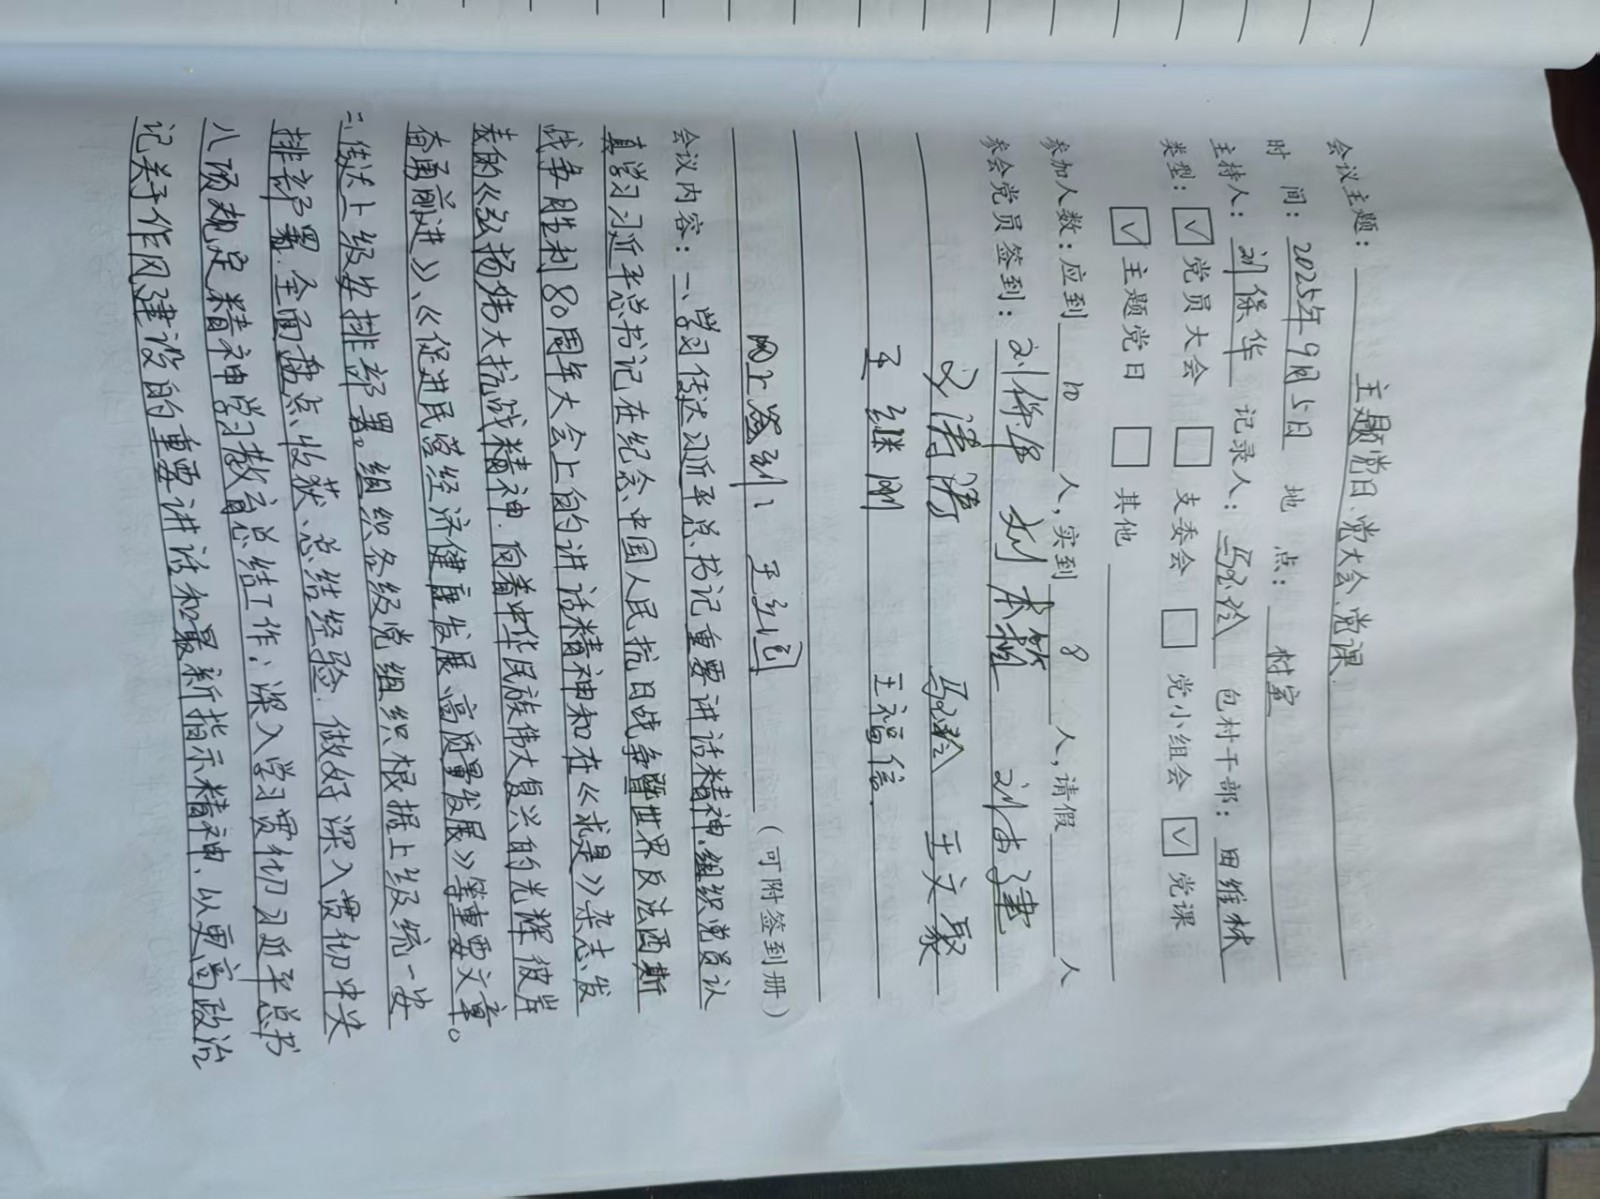 会议主题：主题党日、党大会、党课
时 间：2025年9月5日 地 点：村室
主持人：刘保华 记录人：马玲 包村干部：田维林
类型：☑党员大会 □支委会 □党小组会 ☑党课
☑主题党日 □其他
参加人数：应到10人，实到8人，请假 人
参会党员签到：刘保华 刘 刘志建
马玲 王文聚
王继刚 王福信
网上签到：
（可附签到册）
会议内容：一、学习传达习近平总书记重要讲话精神，组织党员认
真学习习近平总书记在纪念中国人民抗日战争暨世界反法西斯
战争胜利80周年大会上的讲话精神和在《求是》杂志发
表的《弘扬伟大抗战精神，向着中华民族伟大复兴的光辉彼岸
奋勇前进》、《促进民营经济健康发展、高质量发展》等重要文章。
二、传达上级安排部署。组织各级党组织根据上级统一安
排部署，全面盘点、收获、总结经验，做好深入贯彻中央
八项规定精神学习教育总结工作；深入学习贯彻习近平总书
记关于作风建设的重要讲话和最新指示精神，以更高政治